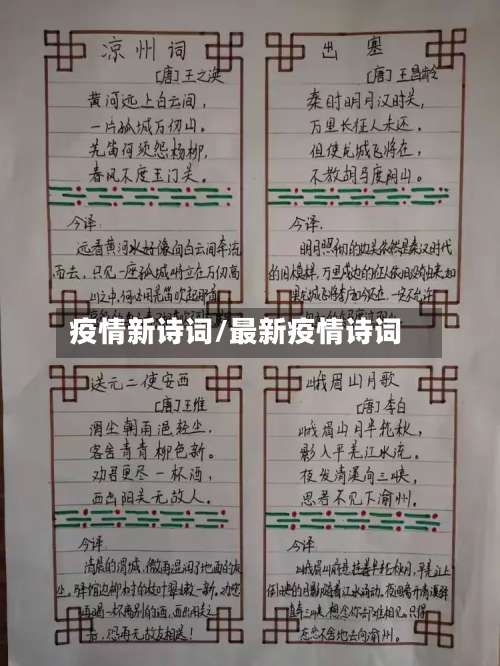 凉州词
[唐]王之涣
黄河远上白云间，
一片孤城万仞山。
羌笛何须怨杨柳，
春风不度玉门关。
今译：
远看黄河水好像向白云间奔流
而去，只见一座孤城屹立在万仞高
山之中，何
出塞
[唐]王昌龄
秦时明月汉时关，
万里长征人未还。
但使龙城飞将在，
不教胡马度阴山。
今译：
明月照彻的边关依然是秦汉时代
的旧模样，万里戍边的征人依旧没有由来，如
疫情新诗词/最新疫情诗词
送元二使安西
[唐]王维
渭尘朝雨浥轻尘，
客舍青青柳色新。
劝君更尽一杯酒，
西出阳关无故人。
今译
清晨的渭城，微雨湿润了地面的灰
尘，驿馆边柳树的枝叶翠嫩一新。劝您
再喝一杯离别的酒，西出阳关之
后，恐再无故友相送！
峨眉山月歌
[唐]李白
峨眉山月半轮秋，
影入平羌江水流。
夜发清溪向三峡，
思君不见下渝州。
今译
峨眉山前悬挂着半轮秋月，平羌江上
月影随着江水流动。夜间
三峡，想念你却难相见，只得
恋恋不舍地去向渝州。